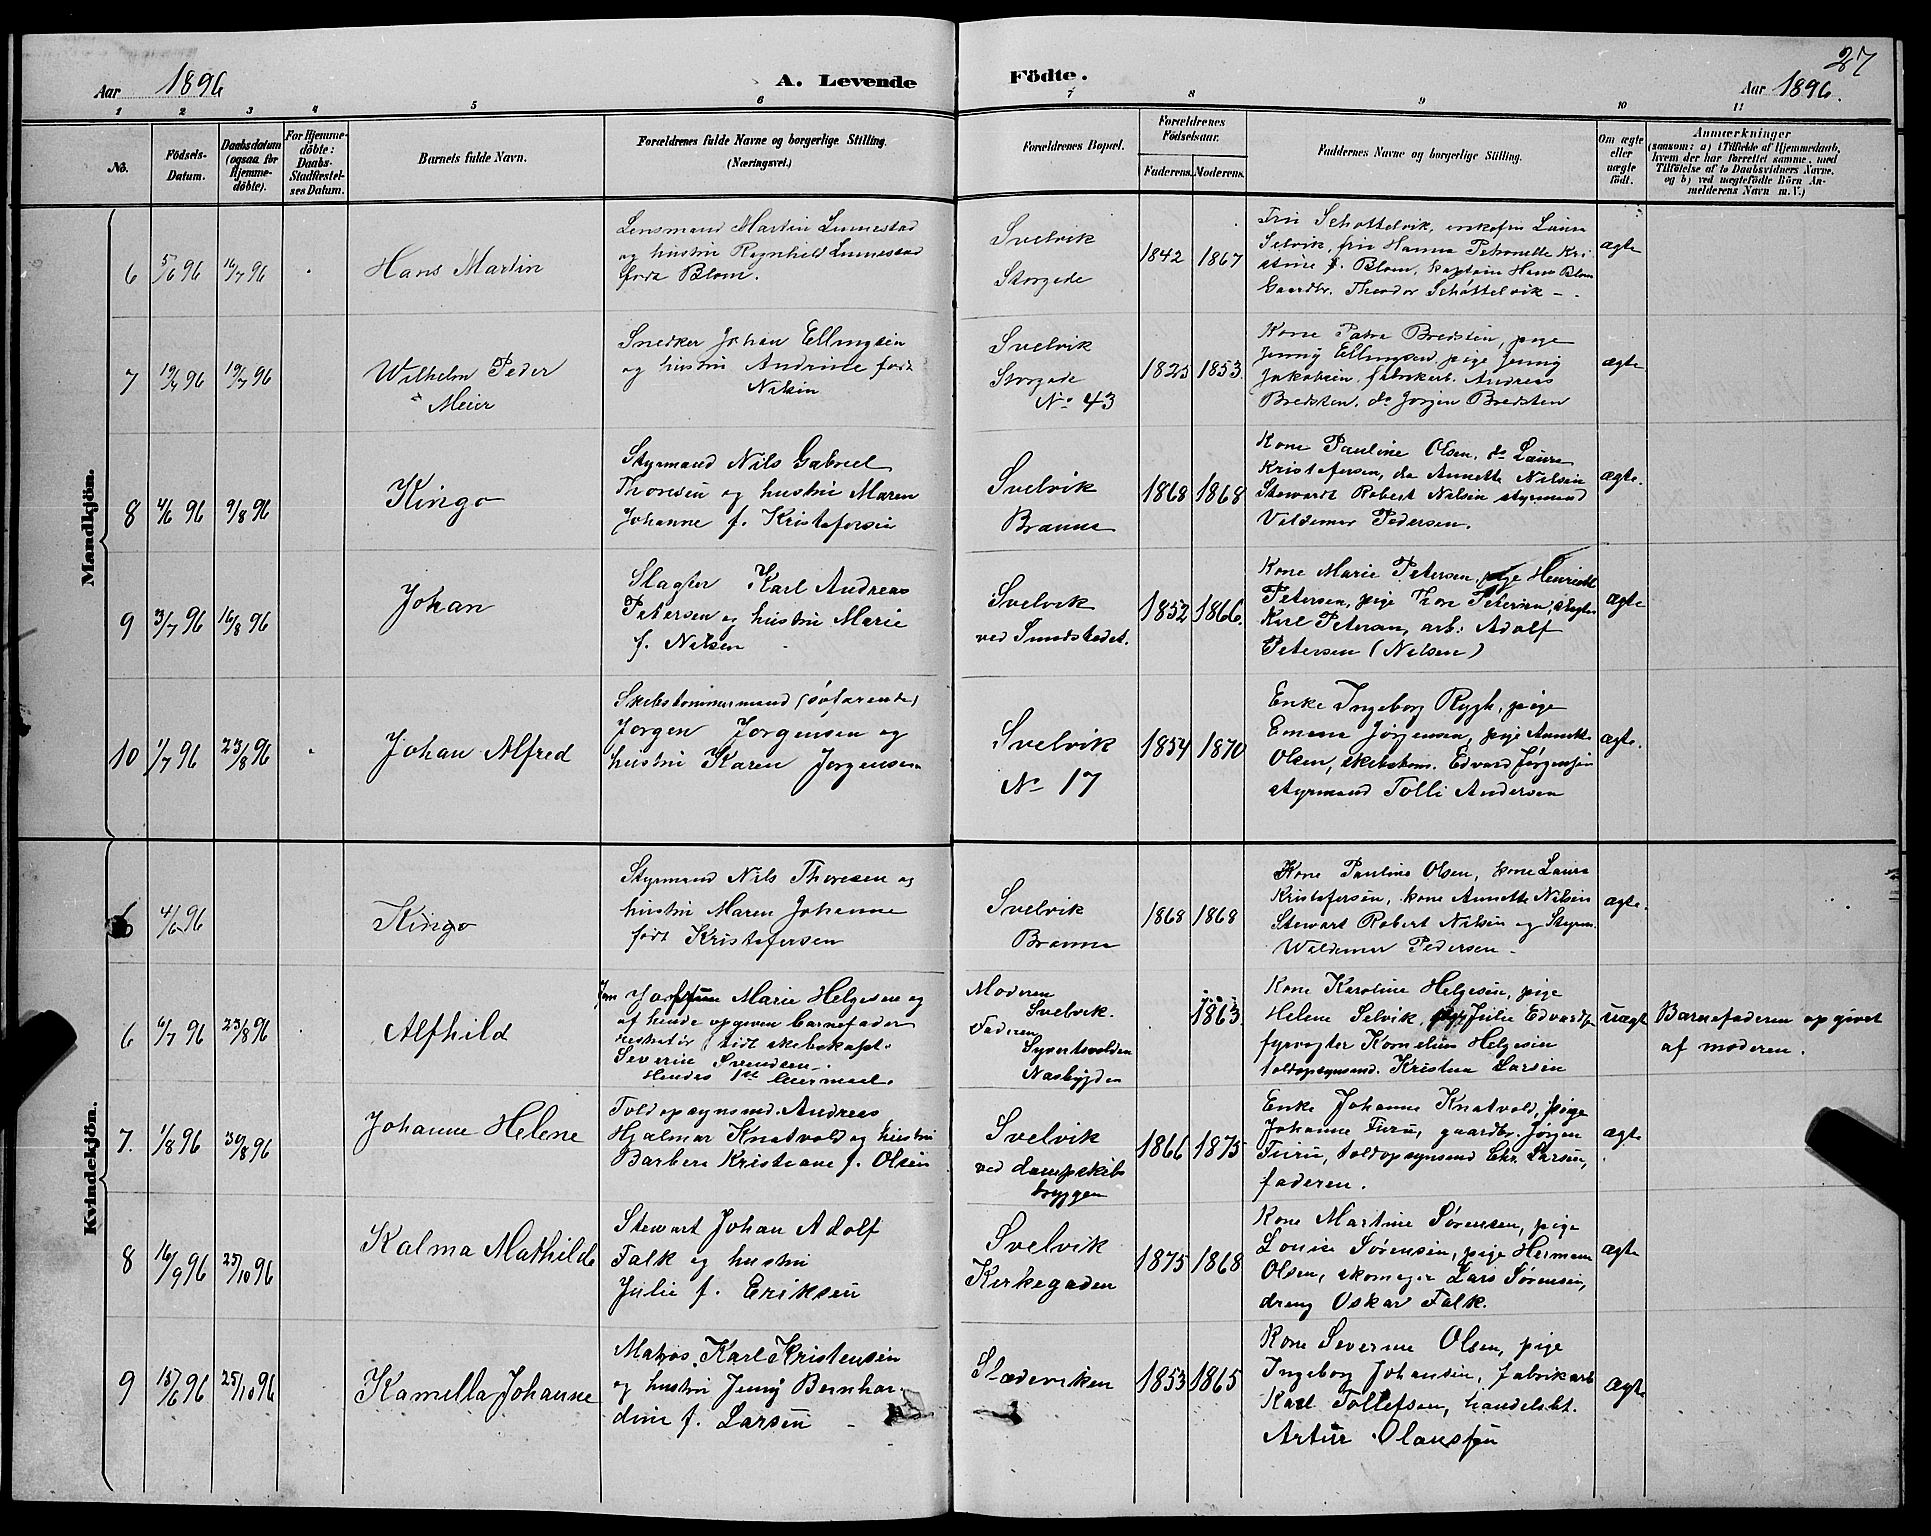 27
Aar 1896
A. Levende
Födte.
Aar 1896.
1 2 3 4 5 6 7 8 9 10 11
No.
Födsels-
Datum.
Daabsdatum
(ogsaa for
Hjemme-
döbte).
For Hjemme-
döbte:
Daabs-
Stadfæstel-
ses Datum.
Barnets fulde Navn.
Forældrenes fulde Navne og borgerlige Stilling.
(Næringsvei.)
Forældrenes Bopæl.
Forældrenes
Födselsaar.
Faderens. Moderens.
Faddernes Navne og borgerlige Stilling.
Om ægte
eller
uægte
födt.
Anmærkninger
(saasom: a) i Tilfælde af Hjemmedaab,
hvem der har forrettet samme, med
Tilföielse af to Daabsvidners Navne,
og b) ved uægtefödte Börn An-
melderens Navn m. V.)
Mandkjön.
6
5/6 96
16/7 96
Hans Martin
Lensmand Martin Linnestad
og hustru Ragnhild Linnestad
født Blom.
Svelvik
Storgade
1842 1867
Fru Schøttelvik, enkefru Laura
Selvik, fru Hanna Petronelle Kri-
stine f. Blom, kaptein Hans Blom
Gaardbr. Theodor Schøttelvik -
ægte
7
19/4 96
19/7 96
Wilhelm Peder
Meier
Snedker Johan Ellingsen
og hustru Andrine født
Nilsen
Svelvik
Storgade
No 43
1825 1853.
Kone Petra Bredsten, pige
Jenny Ellingsen, pige Jenny
Jakobsen, fabrikarb. Andreas
Bredsten, do Jørgen Bredsten
ægte
8
4/6 96
9/8 96
Kingo
Styrmand Nils Gabriel
Thoresen og hustru Maren
Johanne f. Kristofersen
Svelvik
Branna
1868 1868
Kone Pauline Olsen, do Laura
Kristofersen, do Annette Nilsen
Stewardt Robert Nilsen styrmand
Valdemar Pedersen.
ægte.
9
3/7 96
16/8 96
Johan
Slagter Karl Andreas
Petersen og hustru Marie
f. Nilsen
Svelvik
ved Sundstedet.
1852 1866.
Kone Marie Petersen, pige Henriette
Petersen, pige Thora Petersen, slagter
Karl Petersen, arb. Adolf
Petersen (Nilsen)
ægte
10
1/7 96
23/8 96
Johan Alfred
Skibstømmermand (søfarende)
Jørgen Jørgensen og
hustru Karen Jørgensen
Svelvik
No 17
1854 1870
Enke Ingeborg Rygh, pige
Emma Jørgensen, pige Annette
Olsen, skibstøm. Edvard Jørgensen
styrmand Tolli Andersen
ægte.
Kvindekjön.
6
4/6 96
Kingo
Styrmand Nils Thoresen og
hustru Maren Johanne
født Kristofersen
Svelvik
Branna
1868 1868
Kone Pauline Olsen, kone Laura
Kristofersen, kone Annette Nilsen
Stewart Robert Nilsen og Styrm.
Waldemar Pedersen -
ægte.
6
6/7 96
23/8 96
Alfhild
Jomfru Marie Helgesen og
af hende opgiven barnefader
skibskapt.
Severin Svendsen.
Hendes 1ste leiermaal.
Moderen
Svelvik.
Faderen
Syvertsvolden
Nasbygden
1863.
Kone Karoline Helgesen, pige
Helene Selvik, Julie Edvardsen
fyrvogter Kornelius Helgesen
toldopsynsmd. Kristen Larsen
uægt
Barnefaderen opgivet
af moderen.
7.
1/8 96
30/8 96
Johanne Helene
Toldopsynsmd. Andreas
Hjalmar Knatvold og hustru
Barbera Kristiane f. Olsen
Svelvik
ved dampskibs
bryggen
1866 1875
Enke Johanne Knatvold, pige
Johanne Furu, gaardbr. Jørgen
Furu, toldopsynsmd Chr. Larsen,
faderen.
ægte
8
16/9 96
25/10 96
Kalma Mathilde
Stewart Johan Adolf
Falk og hustru
Julie f. Eriksen
Svelvik
Kirkegaden
1875 1868
Kone Martine Sørensen, pige
Louise Sørensen, pige Hermana
Olsen, skomager Lars Sørensen,
dreng Oskar Falk.
ægte
9
15/6 96
25/10 96
Kamilla Johanne
Matros Karl Kristensen
og hustru Jenny Bernhar-
dine f. Larsen -
Stedeviken
1853 1865
Kone Severine Olsen, pige
Ingeborg Johansen, fabrikarb
Karl Tollefsen, handelsbt.
Artur Olaussen
ægte